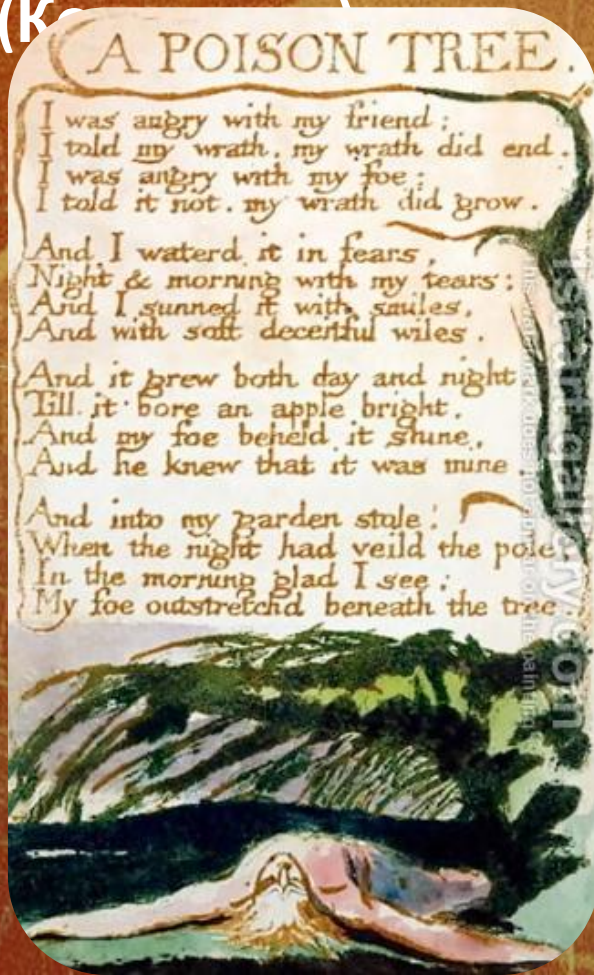 A POISON TREE.
I was angry with my friend:
I told my wrath, my wrath did end.
I was angry with my foe:
I told it not. my wrath did grow.
And I waterd it in fears,
Night & morning with my tears:
And I sunned it with smiles,
And with soft deceitful wiles.
And it grew both day and night
Till it bore an apple bright.
And my foe beheld it shine,
And he knew that it was mine
And into my garden stole.
When the night had veild the pole;
In the morning glad I see;
My foe outstretchd beneath the tree
1st-art-gallery.com
This watermark does not appear on the painting